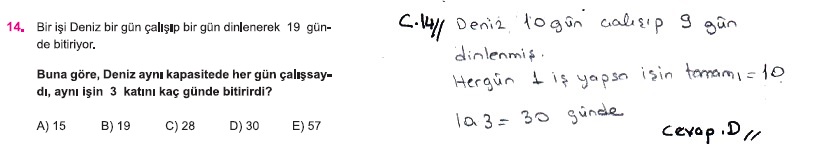 14. Bir işi Deniz bir gün çalışıp bir gün dinlenerek 19 gün-
de bitiriyor.
Buna göre, Deniz aynı kapasitede her gün çalışsay-
dı, aynı işin 3 katını kaç günde bitirirdi?
A) 15 B) 19 C) 28 D) 30 E) 57
C.14// Deniz 10 gün çalışıp 9 gün
dinlenmiş.
Hergün 1 iş yapsa işin tamamı = 10
10.3 = 30 günde
Cevap.D //